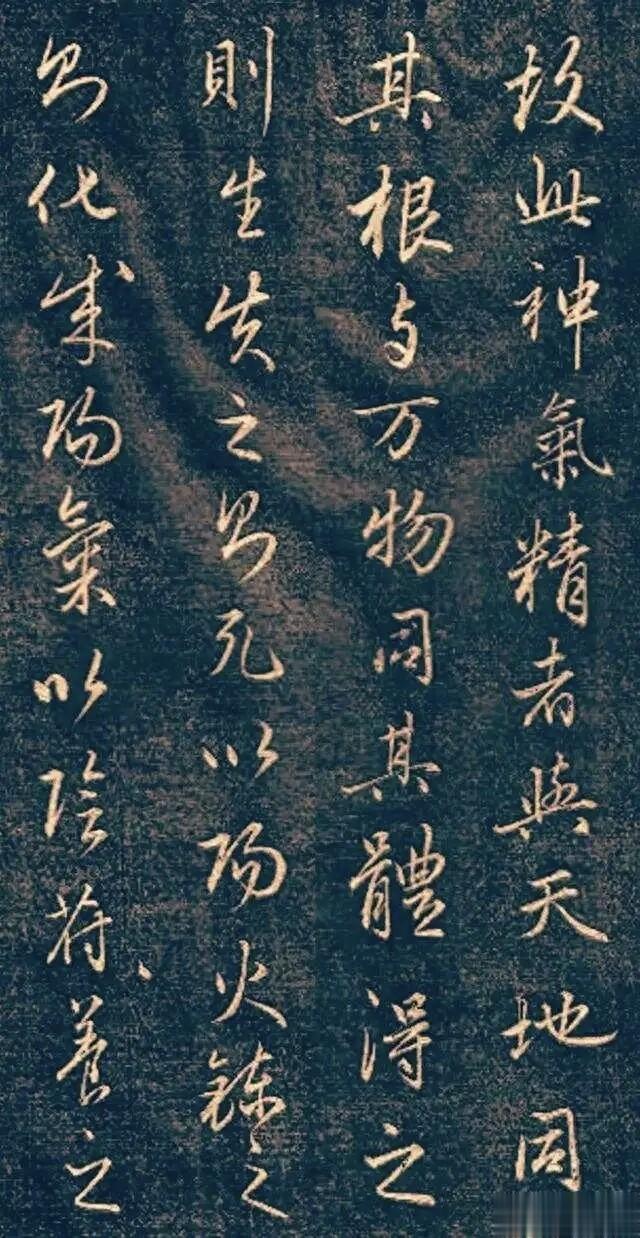 故此神氣精者與天地同
其根与万物同其體得之
則生失之则死以陽火鍊之
则化成陽氣以陰符養之